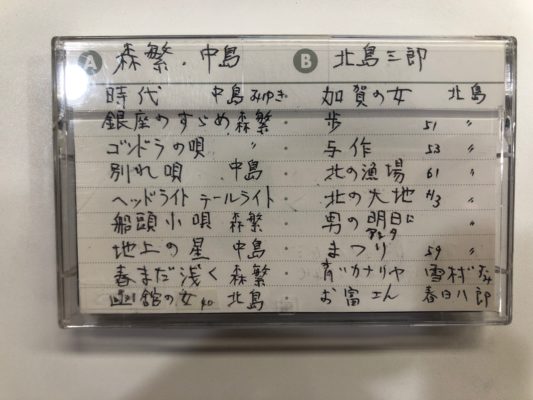 A 森繁・中島
時代 中島みゆき
銀座のすゞめ 森繁
ゴンドラの唄 〃
別れ唄 中島
ヘッドライト テールライト
船頭小唄 森繁
地上の星 中島
春まだ浅く 森繁
函館の女 40 北島
B 北島三郎
加賀の女 北島
歩 51 〃
与作 53 〃
北の漁場 61 〃
北の大地 H3 〃
男の明日は 〃
まつり 59 〃
青いカナリヤ 雪村いづみ
お富さん 春日八郎